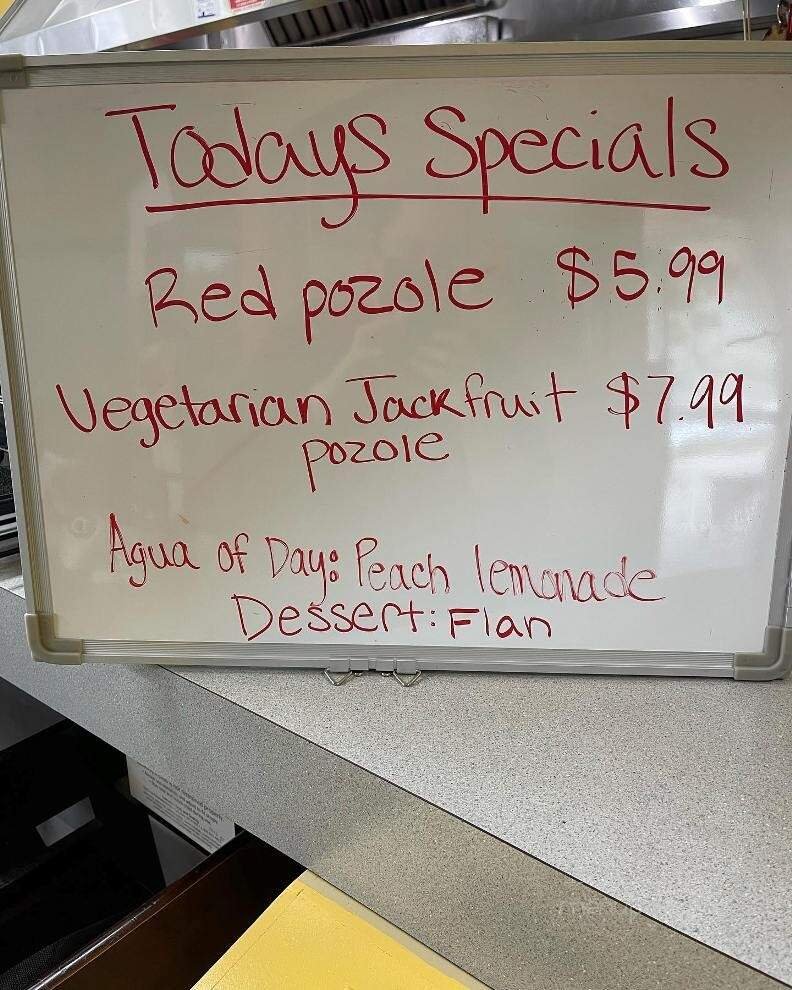 Todays Specials
Red pozole $5.99
Vegetarian Jackfruit $7.99
pozole
Agua of Day: Peach lemonade
Dessert: Flan